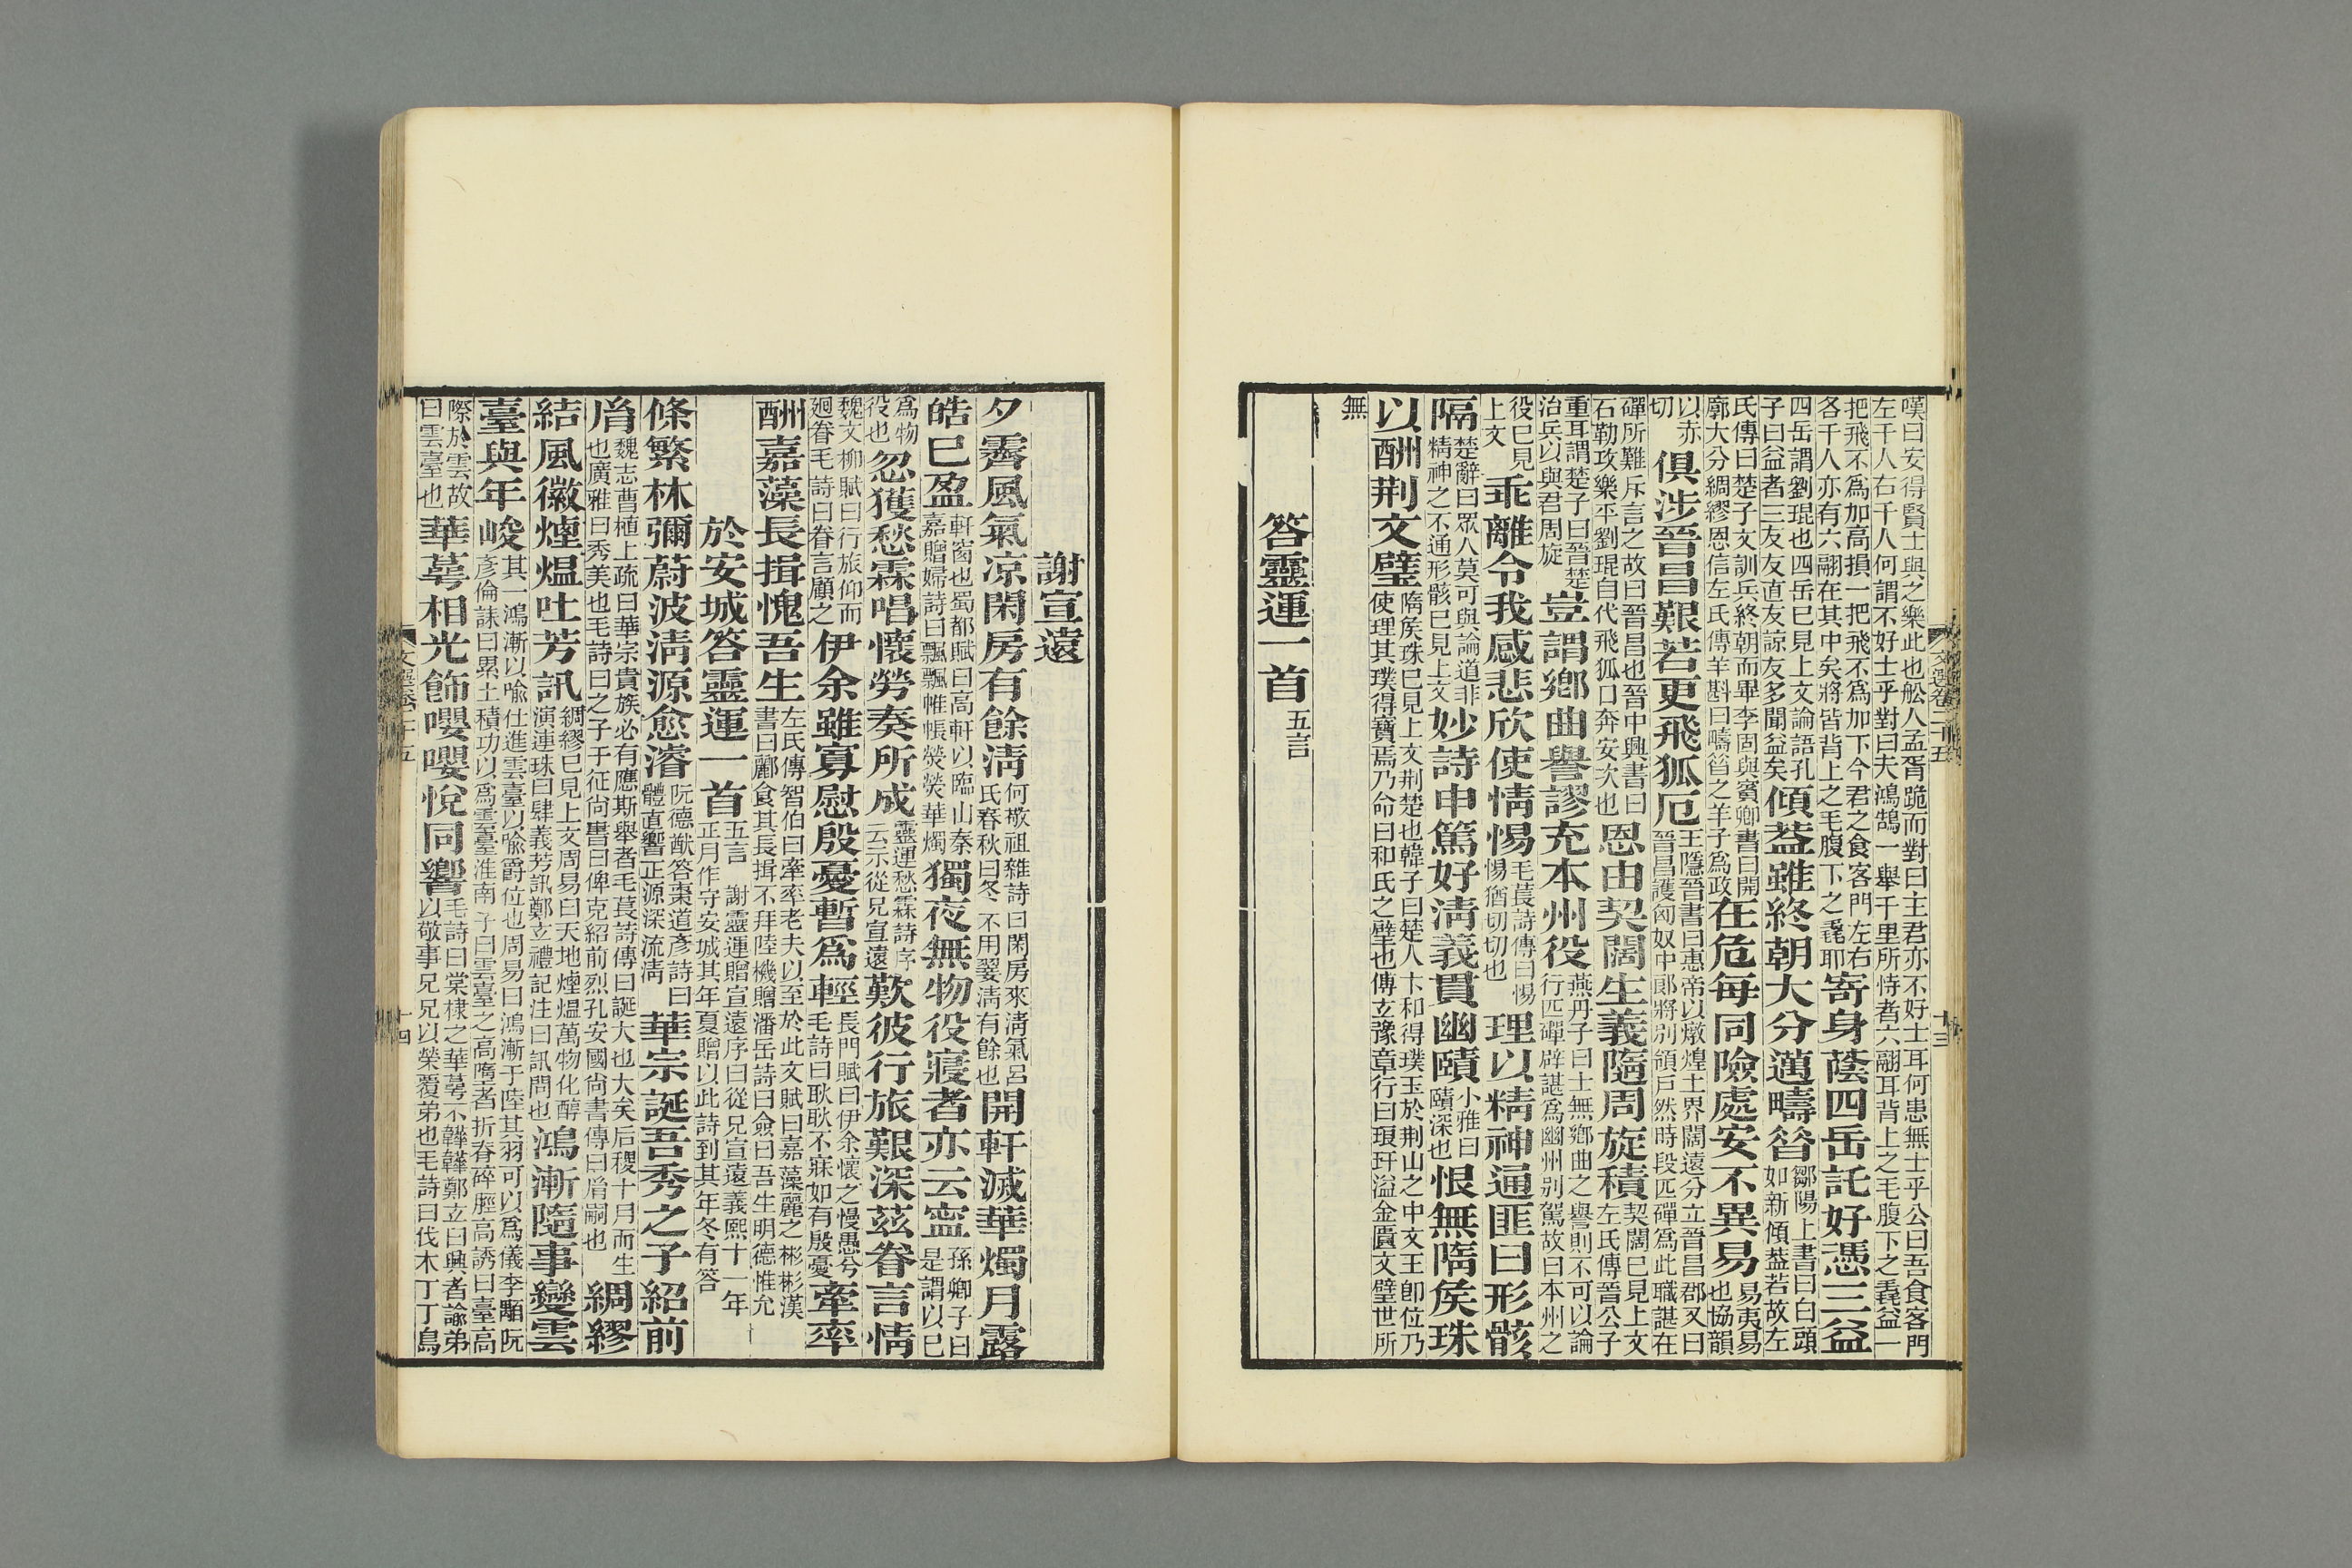 嘆曰安得賢士與之樂此也舩人孟胥跪而對曰主君亦不好士耳何患無士乎公曰吾食客門
左千人右千人何謂不好士乎對曰夫鴻鵠一舉千里所恃者六翮耳背上之毛腹下之毳益一
把飛不爲加高損一把飛不爲加下今君之食客門左右
各千人亦有六翮在其中矣將皆背上之毛腹下之毳耶
寄身蔭四岳託好憑三益
四岳謂劉琨也四岳已見上文論語孔
子曰益者三友友直友諒友多聞益矣
傾葢雖終朝大分邁疇昝
鄒陽上書曰白頭
如新傾葢若故左
氏傳曰楚子文訓兵終朝而畢李固與賓卿書曰開
廓大分綢繆恩信左氏傳羊斟曰疇昝之羊子爲政
在危每同險處安不異易
易夷易
也協韻
以赤
切
俱涉晉昌艱若更飛狐厄
王隱晉書曰惠帝以燉煌土界闊遠分立晉昌郡又曰
晉昌護匈奴中郞將别領戸然時段匹磾爲此職諶在
磾所難斥言之故曰晉昌也晉中興書曰
石勒攻樂平劉琨自代飛狐口奔安次也
恩由契闊生義隨周旋積
契闊已見上文
左氏傳晉公子
重耳謂楚子曰晉楚
治兵以與君周旋
豈謂鄕曲譽謬充本州役
燕丹子曰士無鄕曲之譽則不可以論
行匹磾辟諶爲幽州别駕故曰本州之
役已見
上文
乖離令我感悲欣使情惕
毛萇詩傳曰惕
惕猶切切也
理以精神通匪曰形骸
隔
楚辭曰眾人莫可與論道非
精神之不通形骸已見上文
妙詩申篤好淸義貫幽賾
小雅曰
賾深也
恨無隋矦珠
以酬荆文璧
隋矦珠已見上文荆楚也韓子曰楚人卞和得璞玉於荆山之中文王卽位乃
使理其璞得寶焉乃命曰和氏之璧也傅玄豫章行曰琅玕溢金匱文璧世所
無
答靈運一首
五言
謝宣遠
夕霽風氣凉閑房有餘淸
何敬祖雜詩曰閑房來淸氣呂
氏春秋曰冬不用翣淸有餘也
開軒滅華燭月露
皓已盈
軒窗也蜀都賦曰高軒以臨山秦
嘉贈婦詩曰飄飄帷帳熒熒華燭
獨夜無物役寢者亦云寧
孫卿子曰
是謂以已
爲物
役也
忽獲愁霖唱懷勞奏所成
靈運愁霖詩序
云示從兄宣遠
歎彼行旅艱深茲眷言情
魏文柳賦曰行旅仰而
廻眷毛詩曰眷言顧之
伊余雖寡慰殷憂暫爲輕
長門賦曰伊余懷之慢愚兮
毛詩曰耿耿不寐如有殷憂
牽率
酬嘉藻長揖愧吾生
左氏傳智伯曰牽率老夫以至於此文賦曰嘉藻麗之彬彬漢
書曰酈食其長揖不拜陸機贈潘岳詩曰僉曰吾生明德惟允
於安城答靈運一首
五言　謝靈運贈宣遠序曰從兄宣遠義熙十一年
正月作守安城其年夏贈以此詩到其年冬有答
條繁林彌蔚波淸源愈濬
阮德猷答棗道彥詩曰
體直響正源深流淸
華宗誕吾秀之子紹前
㣧
魏志曹植上疏曰華宗貴族必有應斯舉者毛萇詩傳曰誕大也大矣后稷十月而生
也廣雅曰秀美也毛詩曰之子于征尙書曰俾克紹前烈孔安國尙書傳曰㣧嗣也
綢繆
結風徽煙熅吐芳訊
綢繆已見上文周易曰天地煙熅萬物化醇
演連珠曰肆義芳訊鄭玄禮記注曰訊問也
鴻漸隨事變雲
臺與年峻
其一鴻漸以喩仕進雲臺以喩爵位也周易曰鴻漸于陸其羽可以爲儀李顒阮
彥倫誄曰累土積功以爲雲臺淮南子曰雲臺之高墮者折脊碎脛高誘曰臺高
際於雲故
曰雲臺也
華萼相光飾嚶嚶悅同響
毛詩曰棠棣之華萼不韡韡鄭玄曰興者諭弟
以敬事兄兄以榮覆弟也毛詩曰伐木丁丁鳥